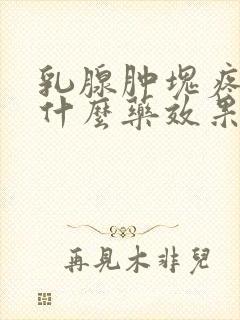 乳腺肿塊疼
什麼藥效果
再見木非兒